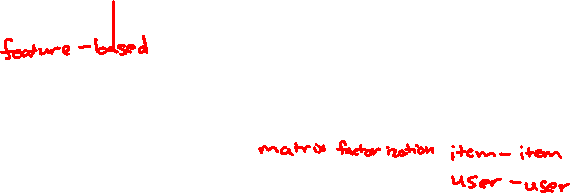 feature-based
matrix factorization item-item
user-user